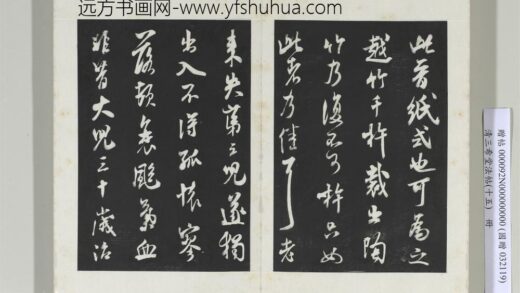 远方书画网-www.yfshuhua.com
此晋纸式也可为之
越竹千杵裁出陶
竹乃复不可杵只如
此者乃佳耳老
来失第二儿遂独
出入不得孤怀寥
落顿衰飒气血
非昔大儿三十岁治
赠帖 000092N000000000 (国赠 032119)
清三希堂法帖(十五) 册